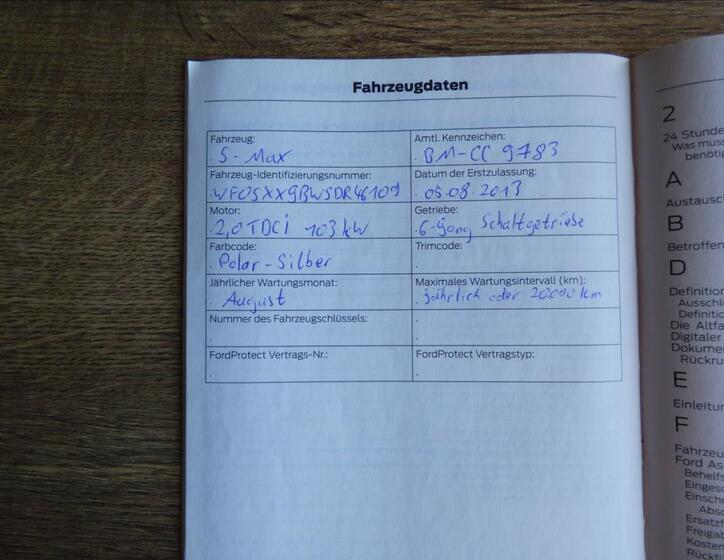 Fahrzeugdaten
Fahrzeug:
S-Max
Amtl. Kennzeichen:
BM-CC 9783
Fahrzeug-Identifizierungsnummer:
Datum der Erstzulassung:
05.08.2013
Motor:
2,0 TDCi 103 kW
Getriebe:
6-Gang Schaltgetriebe
Farbcode:
Polar-Silber
Trimcode:
Jährlicher Wartungsmonat:
August
Maximales Wartungsintervall (km):
jährlich oder 20000 km
Nummer des Fahrzeugschlüssels:
FordProtect Vertrags-Nr.:
FordProtect Vertragstyp:
2
24 Stunde
Was muss
benötig
A
Austausc
B
Betroffen
D
Definition
Aussch
Definitio
Die Altfa
Digitaler
Dokume
Rückru
E
Einleitur
F
Fahrzeu
Ford As
Behelfs
Einges
Einsch
Abs
Ersatzf
Freigal
Kosten
Rückfü